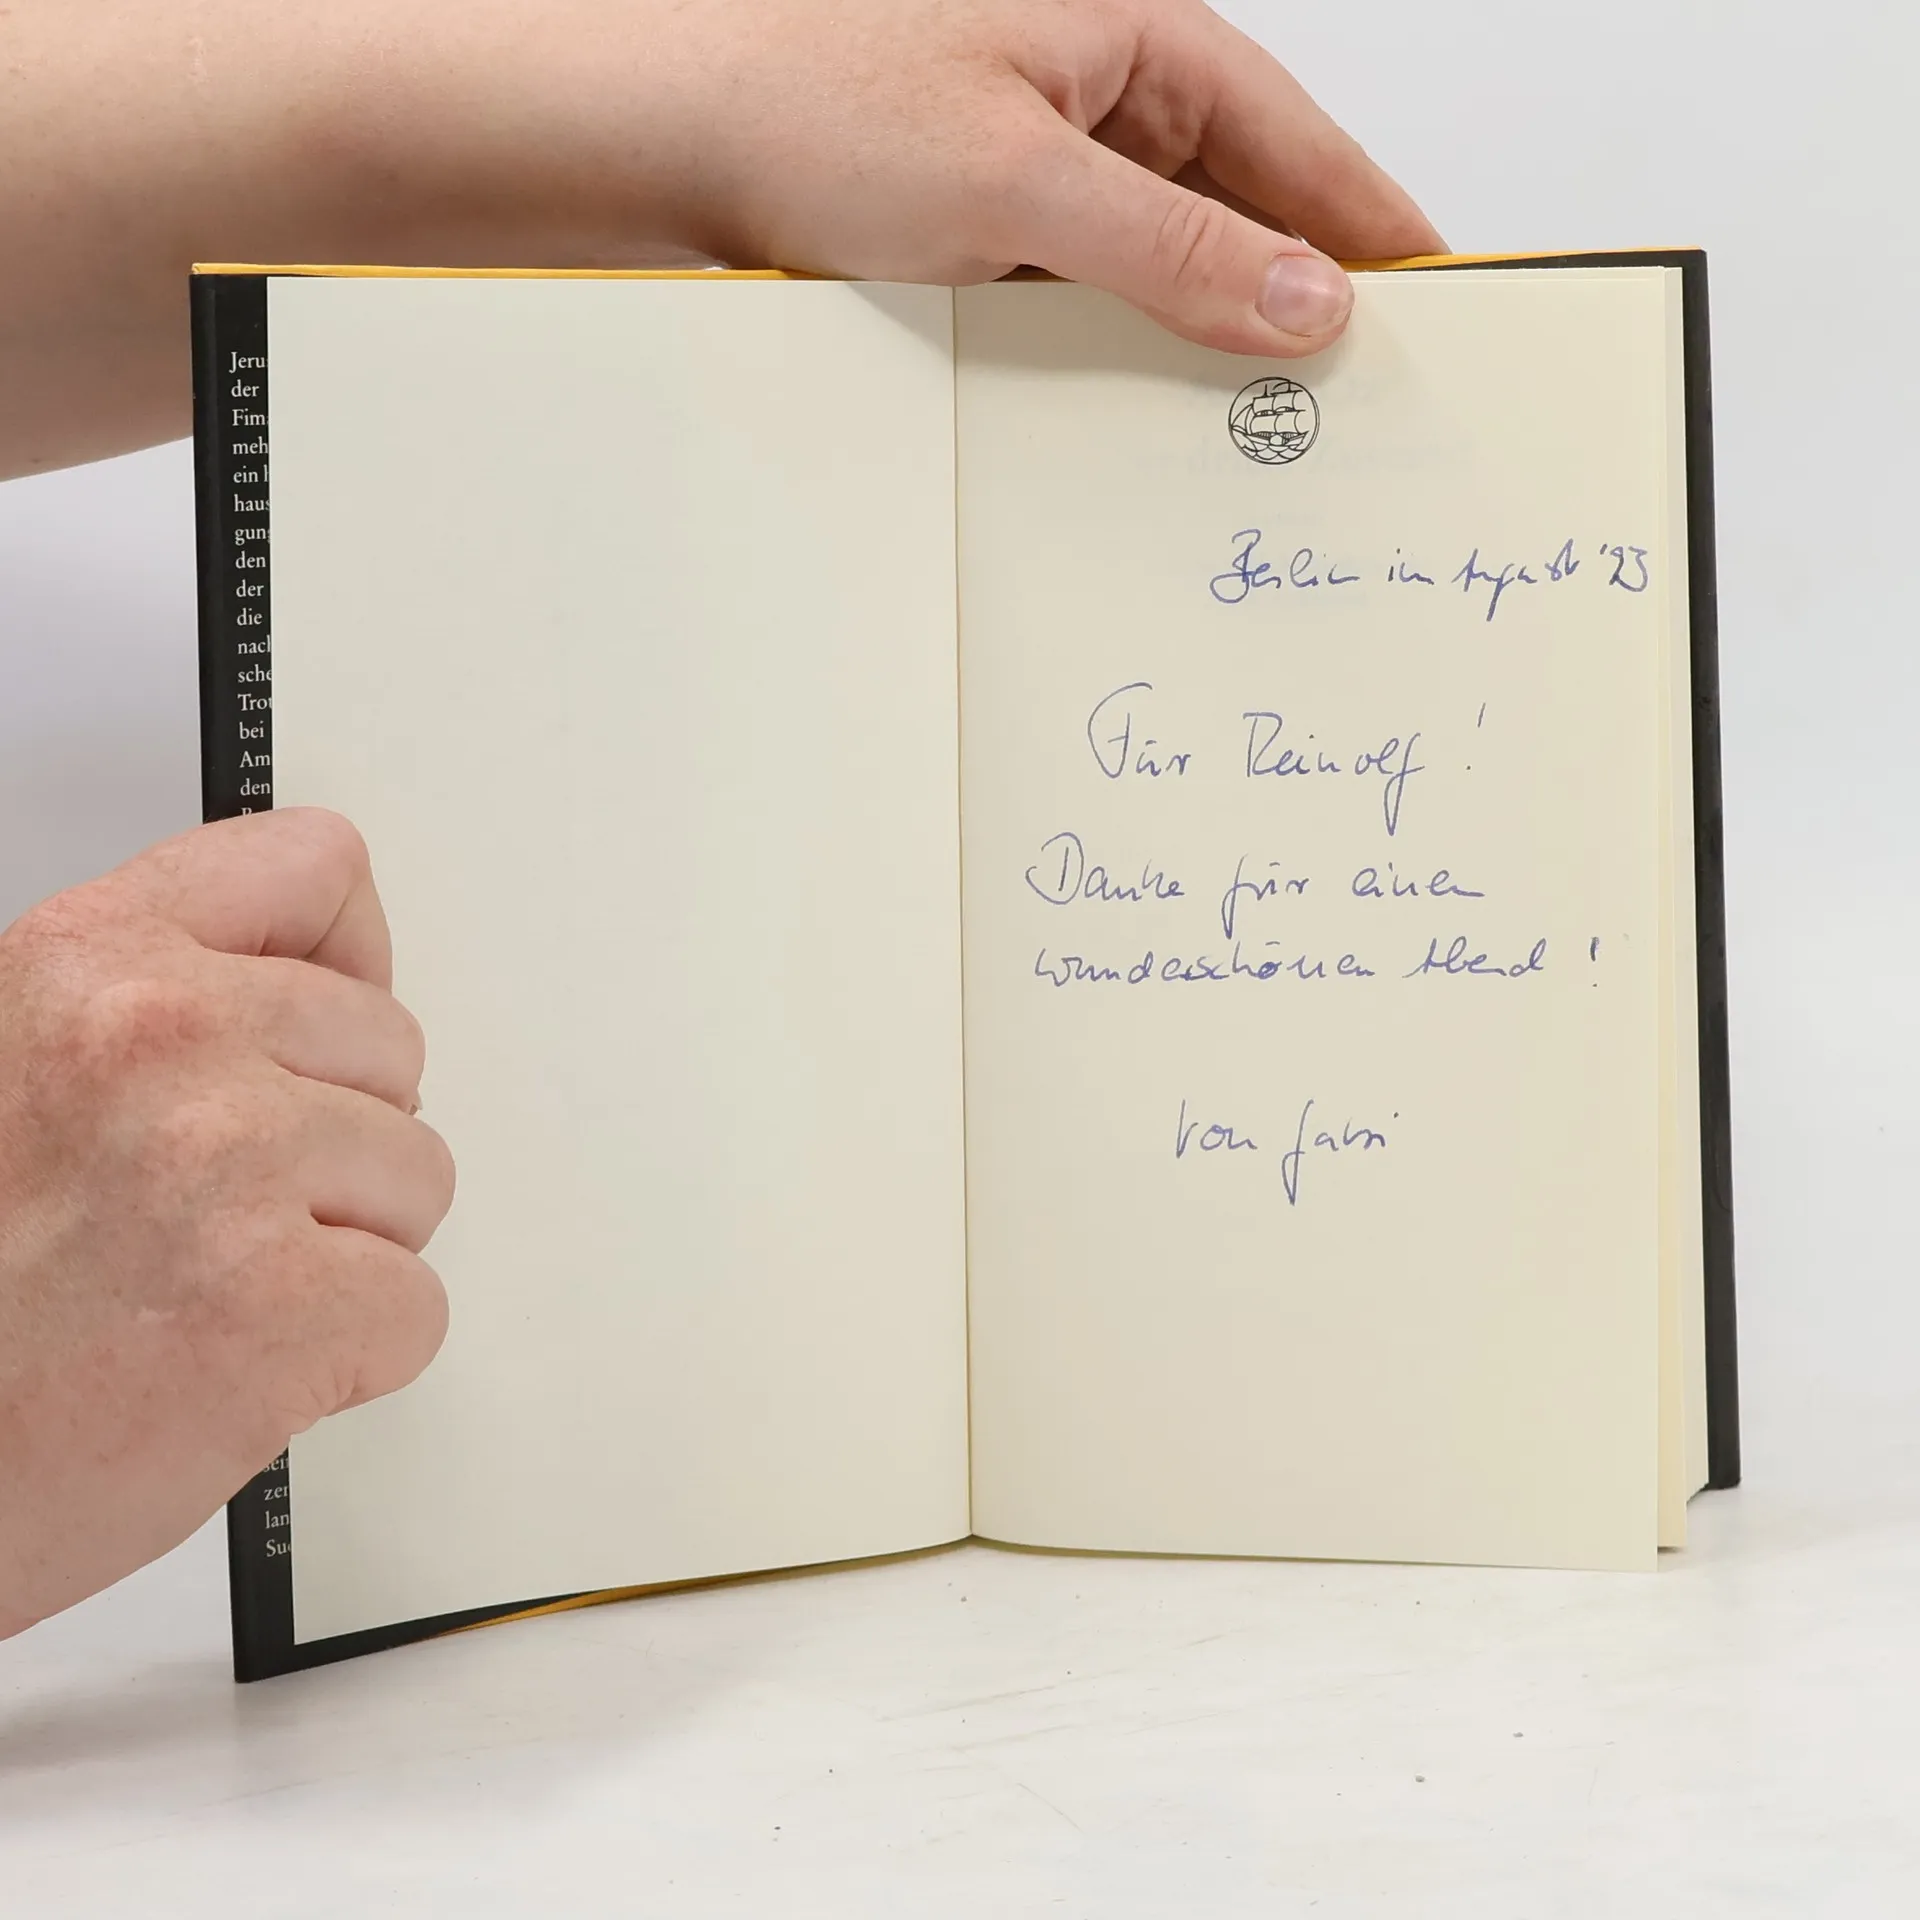 Jeru
der
Fim
meh
ein h
haus
gung
den
der
die
nach
sche
Trot
bei
Am
den
sein
zer
lan
Su
Berlin im August '93
Für Reinolf !
Danke für einen
wunderschönen Abend !
von Gabi